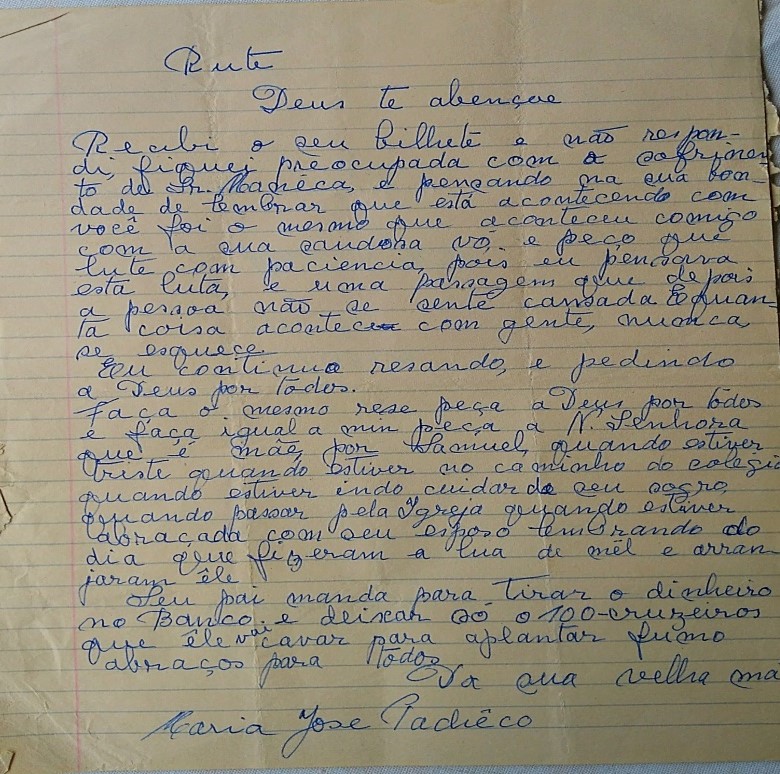 Rute
Deus te abençoe
Recebi o seu bilhete e não respon-
di, fiquei preocupada com o sofrimen
to do Sr. Machêca, e pensando na sua bon-
dade de lembrar que está acontecendo com
você foi o mesmo que aconteceu comigo
com a sua saudosa vó, e peço que
lute com paciencia, pois eu pensava
está luta, e uma passagem que depois
a pessoa não se sente cansada E quan-
ta coisa acontece com gente, nunca,
se esquece.
Eu continuo resando, e pedindo
a Deus por todos.
faça o mesmo rese peça a Deus por todos
e faça igual a min peça a N. Senhora
que é mãe, por Samuel, quando estiver
triste quando estiver no caminho do colegio
quando estiver indo cuidar do seu sogro,
quando passar pela Igreja quando estiver
abraçada com seu esposo lembrando do
dia que fizeram a lua de mel e arran
jaram êle.
Seu pai manda para tirar o dinheiro
no Banco. e deixar só o 100-cruzeiros
que êle vai cavar para aplantar fumo
abraços para todos
Da sua velha mã
Maria Jose Pachêco